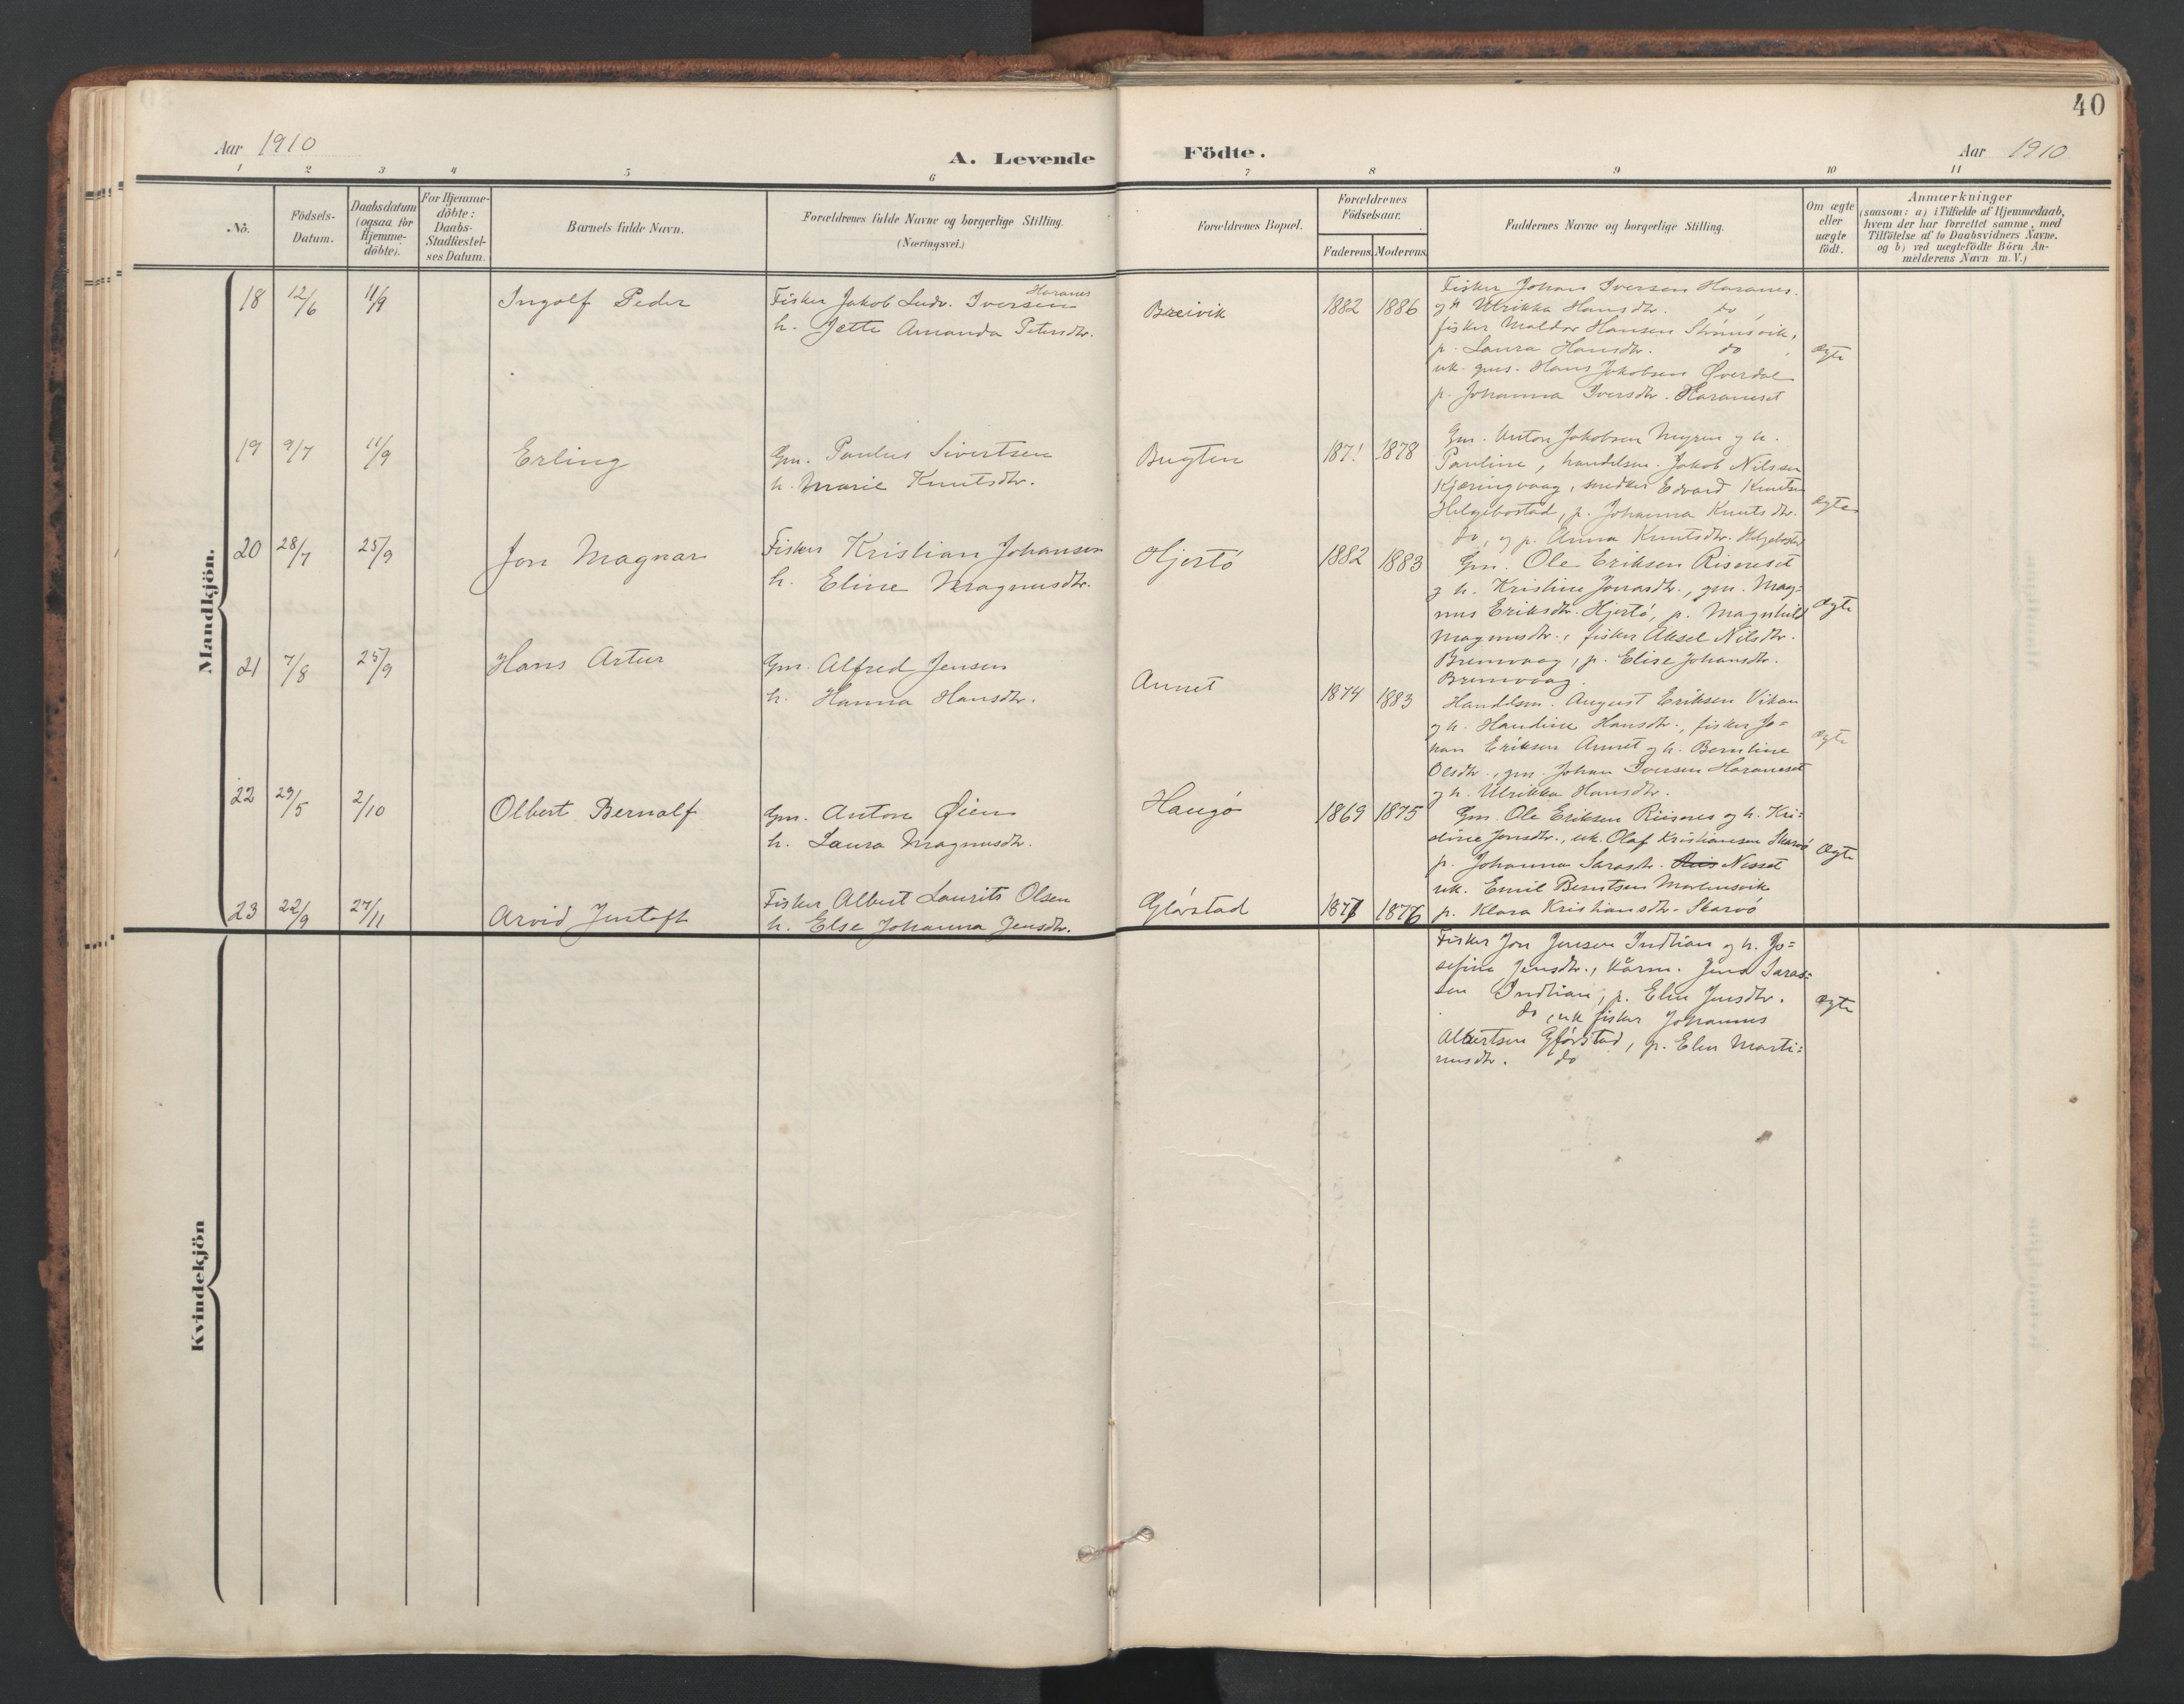 40
Aar 1910
A. Levende Födte.
Aar 1910
1 2 3 4 5 6 7 8 9 10 11
Nö.
Födsels-
Datum.
Daabsdatum
(ogsaa for
Hjemme-
döbte).
For Hjemme-
döbte:
Daabs-
Stadfæstel-
ses Datum.
Barnets fulde Navn.
Forældrenes fulde Navne og borgerlige Stilling.
(Næringsvei.)
Forældrenes Bopæl.
Forældrenes
Födselsaar.
Faderens. Moderens.
Faddernes Navne og borgerlige Stilling.
Om ægte
eller
uægte
födt.
Anmærkninger
(saasom: a) i Tilfælde af Hjemmedaab,
hvem der har forrettet samme, med
Tilföielse af to Daabsvidners Navne,
og b) ved uægtefödte Börn An-
melderens Navn m. V.)
Mandkjön.
18 12/6 11/9 Ingolf Peder
Fisker Jakob Ludv. Iversen Haranes
h. Jette Amanda Petersdtr.
Breivik 1882 1886
Fisker Johan Iversen Haranes.
og h Ulrikka Hansdtr. do
fisker Haldor Hansen Strömsvik,
p. Laura Hansdtr. do
uk. gms. Hans Jakobsen Överdal
p. Johanna Iversdtr. Haraneset
ægte
19 9/7 11/9 Erling
Gm. Paulus Sivertsen
h. Marie Knutsdtr.
Bugten 1871 1878
Gm. Anton Jakobsen Myren og h.
Pauline, handelsm. Jakob Nilssen
Kjæringvaag, snedker Edvard Knutsen
Helgebostad, p. Johanna Knutsdtr.
do, og p. Anna Knutsdtr. Helgebostad
ægte
20 28/7 25/9 Jon Magnar
Fisker Kristian Johansen
h. Eline Magnusdtr.
Hjertö 1882 1883
Gm. Ole Eriksen Risneset
og h. Kristine Jonasdtr., gm. Mag=
nus Eriksdtr. Hjertö, p. Magnhild
Magnusdtr., fisker Aksel Nilsdtr.
Bremvaag, p. Elise Johansdtr.
Bremvaag.
Ægte
21 7/8 25/9 Hans Artur
Gm. Alfred Jensen
h. Hanna Hansdtr.
Annet 1874 1883
Handelsm. August Eriksen Vikan
og h. Haudine Hansdtr., fisker Jo=
han Eriksen Annet og h. Berntine
Olsdtr., gm. Johan Iversen Haraneset
og h. Ulrikka Hansdtr.
Ægte
22 29/5 2/10 Olbert Bernalf
Gm. Anton Øien
h. Laura Magnusdtr.
Haugö 1869 1875
Gm. Ole Eriksen Risnes og h. Kri-
stine Jonsdtr., uk. Olaf Kristiansen Skarvö
p. Johanna Larasdtr. Nesset
uk. Emil Berntsen Martinsvik
p. Klara Kristiansdtr. Skarvö
Ægte
23 22/9 27/11 Arvid Justoft
Fisker Albert Laurits Olsen
h. Else Johanna Jensdtr.
Gjörstad 1877 1876
Fisker Jon Jensen Indtian og h. Jo=
sefine Jensdtr., kårm. Jens Laras=
sen Indtian, p. Elen Jensdtr.
do, uk fisker Johannes
Albertsen Gjörstad, p. Elen Marti=
nusdtr. do
ægte
Kvindekjön